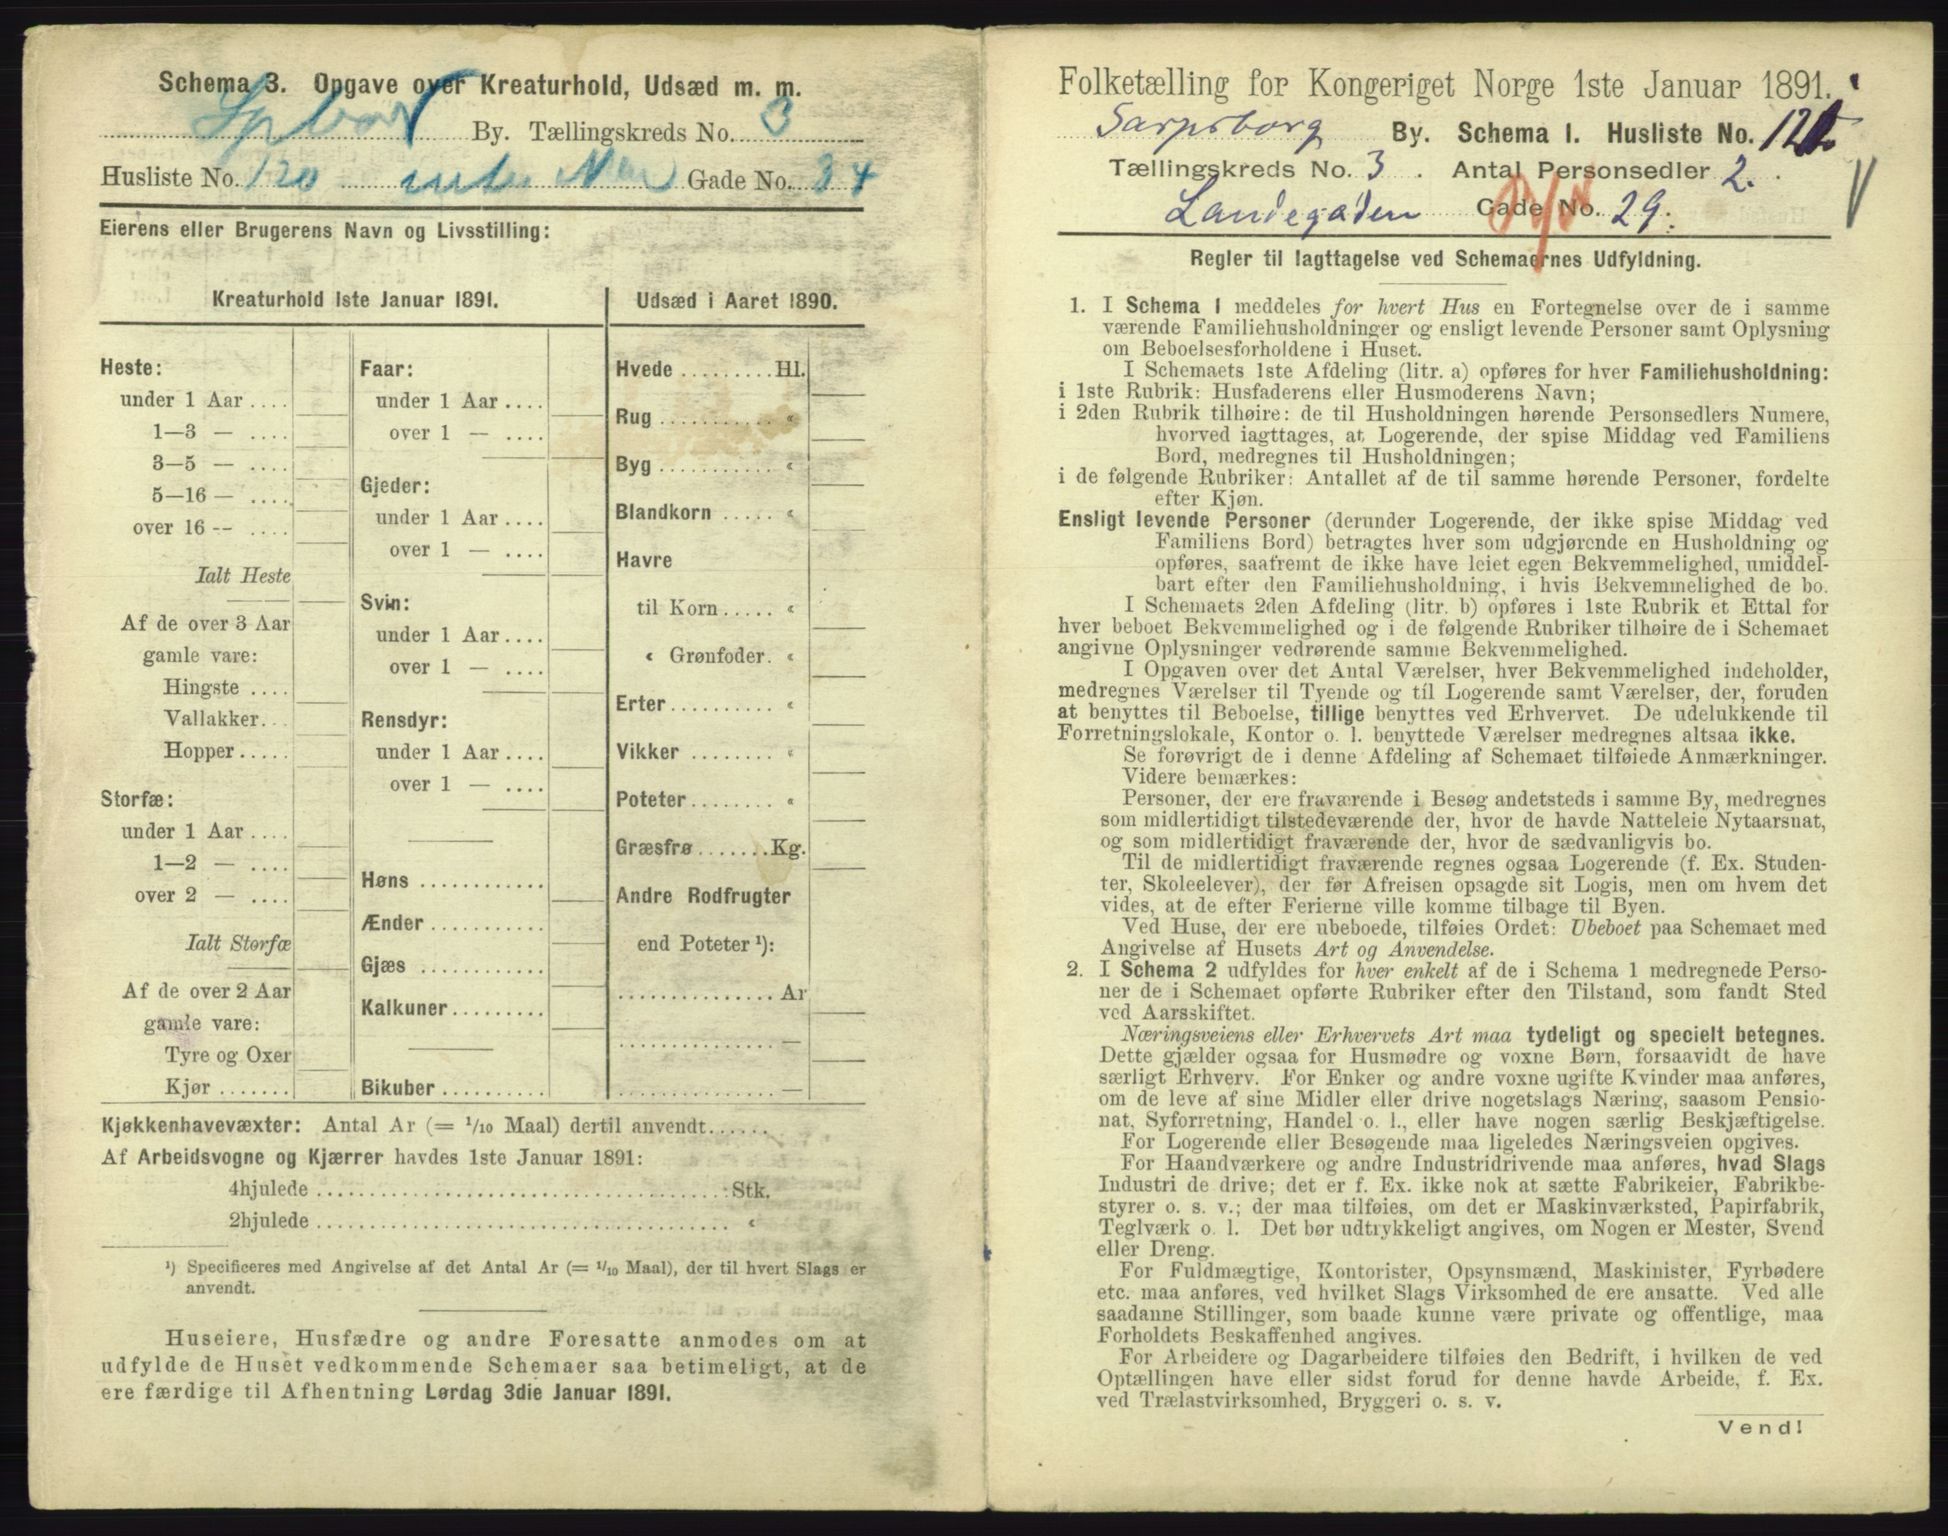 Schema 3. Opgave over Kreaturhold, Udsæd m. m.
By. Tællingskreds No. 3
Husliste No. 120 Gade No. 34
Eierens eller Brugerens Navn og Livsstilling:
Kreaturhold 1ste Januar 1891.
Heste:
under 1 Aar ....
1—3 — ....
3—5 — ....
5—16 — ....
over 16 -- ....
Ialt Heste
Af de over 3 Aar
gamle vare:
Hingste ....
Vallakker...
Hopper.....
Storfæ:
under 1 Aar ....
1—2 — ....
over 2 — ....
Ialt Storfæ
Af de over 2 Aar
gamle vare:
Tyre og Oxer
Kjør .......
Faar:
under 1 Aar ....
over 1 — ....
Gjeder:
under 1 Aar ....
over 1 — ....
Svin:
under 1 Aar ....
over 1 — ....
Rensdyr:
under 1 Aar ....
over 1 — ....
Høns ............
Ænder ............
Gjæs ............
Kalkuner.........
Bikuber ..........
Udsæd i Aaret 1890.
Hvede .........Hl.
Rug ........... «
Byg ........... «
Blandkorn ..... «
Havre
til Korn ..... «
« Grønfoder. «
Erter.......... «
Vikker ........ «
Poteter........ «
Græsfrø .......Kg.
Andre Rodfrugter
end Poteter ¹):
............... Ar
............... —
............... —
Kjøkkenhavevæxter: Antal Ar (= 1/10 Maal) dertil anvendt......
Af Arbeidsvogne og Kjærrer havdes 1ste Januar 1891:
4hjulede ........................................Stk.
2hjulede ........................................ «
¹) Specificeres med Angivelse af det Antal Ar (= 1/10 Maal), der til hvert Slags er
anvendt.
Huseiere, Husfædre og andre Foresatte anmodes om at
udfylde de Huset vedkommende Schemaer saa betimeligt, at de
ere færdige til Afhentning Lørdag 3die Januar 1891.
Folketælling for Kongeriget Norge 1ste Januar 1891.
Sarpsborg By. Schema I. Husliste No.
Tællingskreds No. 3 . Antal Personsedler 2. .
Landegaden Gade No. 29.
Regler til Iagttagelse ved Schemaernes Udfyldning.
1. I Schema 1 meddeles for hvert Hus en Fortegnelse over de i samme
værende Familiehusholdninger og ensligt levende Personer samt Oplysning
om Beboelsesforholdene i Huset.
I Schemaets 1ste Afdeling (litr. a) opføres for hver Familiehusholdning:
i 1ste Rubrik: Husfaderens eller Husmoderens Navn;
i 2den Rubrik tilhøire: de til Husholdningen hørende Personsedlers Numere,
hvorved iagttages, at Logerende, der spise Middag ved Familiens
Bord, medregnes til Husholdningen;
i de følgende Rubriker: Antallet af de til samme hørende Personer, fordelte
efter Kjøn.
Ensligt levende Personer (derunder Logerende, der ikke spise Middag ved
Familiens Bord) betragtes hver som udgjørende en Husholdning og
opføres, saafremt de ikke have leiet egen Bekvemmelighed, umiddel-
bart efter den Familiehusholdning, i hvis Bekvemmelighed de bo.
I Schemaets 2den Afdeling (litr. b) opføres i 1ste Rubrik et Ettal for
hver beboet Bekvemmelighed og i de følgende Rubriker tilhøire de i Schemaet
angivne Oplysninger vedrørende samme Bekvemmelighed.
I Opgaven over det Antal Værelser, hver Bekvemmelighed indeholder,
medregnes Værelser til Tyende og til Logerende samt Værelser, der, foruden
at benyttes til Beboelse, tillige benyttes ved Erhvervet. De udelukkende til
Forretningslokale, Kontor o. l. benyttede Værelser medregnes altsaa ikke.
Se forøvrigt de i denne Afdeling af Schemaet tilføiede Anmærkninger.
Videre bemærkes:
Personer, der ere fraværende i Besøg andetsteds i samme By, medregnes
som midlertidigt tilstedeværende der, hvor de havde Natteleie Nytaarsnat,
og som midlertidigt fraværende der, hvor de sædvanligvis bo.
Til de midlertidigt fraværende regnes ogsaa Logerende (f. Ex. Studen-
ter, Skoleelever), der før Afreisen opsagde sit Logis, men om hvem det
vides, at de efter Ferierne ville komme tilbage til Byen.
Ved Huse, der ere ubeboede, tilføies Ordet: Ubeboet paa Schemaet med
Angivelse af Husets Art og Anvendelse.
2. I Schema 2 udfyldes for hver enkelt af de i Schema 1 medregnede Perso-
ner de i Schemaet opførte Rubriker efter den Tilstand, som fandt Sted
ved Aarsskiftet.
Næringsveiens eller Erhvervets Art maa tydeligt og specielt betegnes.
Dette gjælder ogsaa for Husmødre og voxne Børn, forsaavidt de have
særligt Erhverv. For Enker og andre voxne ugifte Kvinder maa anføres,
om de leve af sine Midler eller drive nogetslags Næring, saasom Pensio-
nat, Syforretning, Handel o. l., eller have nogen særlig Beskjæftigelse.
For Logerende eller Besøgende maa ligeledes Næringsveien opgives.
For Haandværkere og andre Industridrivende maa anføres, hvad Slags
Industri de drive; det er f. Ex. ikke nok at sætte Fabrikeier, Fabrikbe-
styrer o. s. v.; der maa tilføies, om det er Maskinværksted, Papirfabrik,
Teglværk o. l. Det bør udtrykkeligt angives, om Nogen er Mester, Svend
eller Dreng.
For Fuldmægtige, Kontorister, Opsynsmænd, Maskinister, Fyrbødere
etc. maa anføres, ved hvilket Slags Virksomhed de ere ansatte. Ved alle
saadanne Stillinger, som baade kunne være private og offentlige, maa
Forholdets Beskaffenhed angives.
For Arbeidere og Dagarbeidere tilføies den Bedrift, i hvilken de ved
Optællingen have eller sidst forud for denne havde Arbeide, f. Ex.
ved Trælastvirksomhed, Bryggeri o. s. v.
Vend!